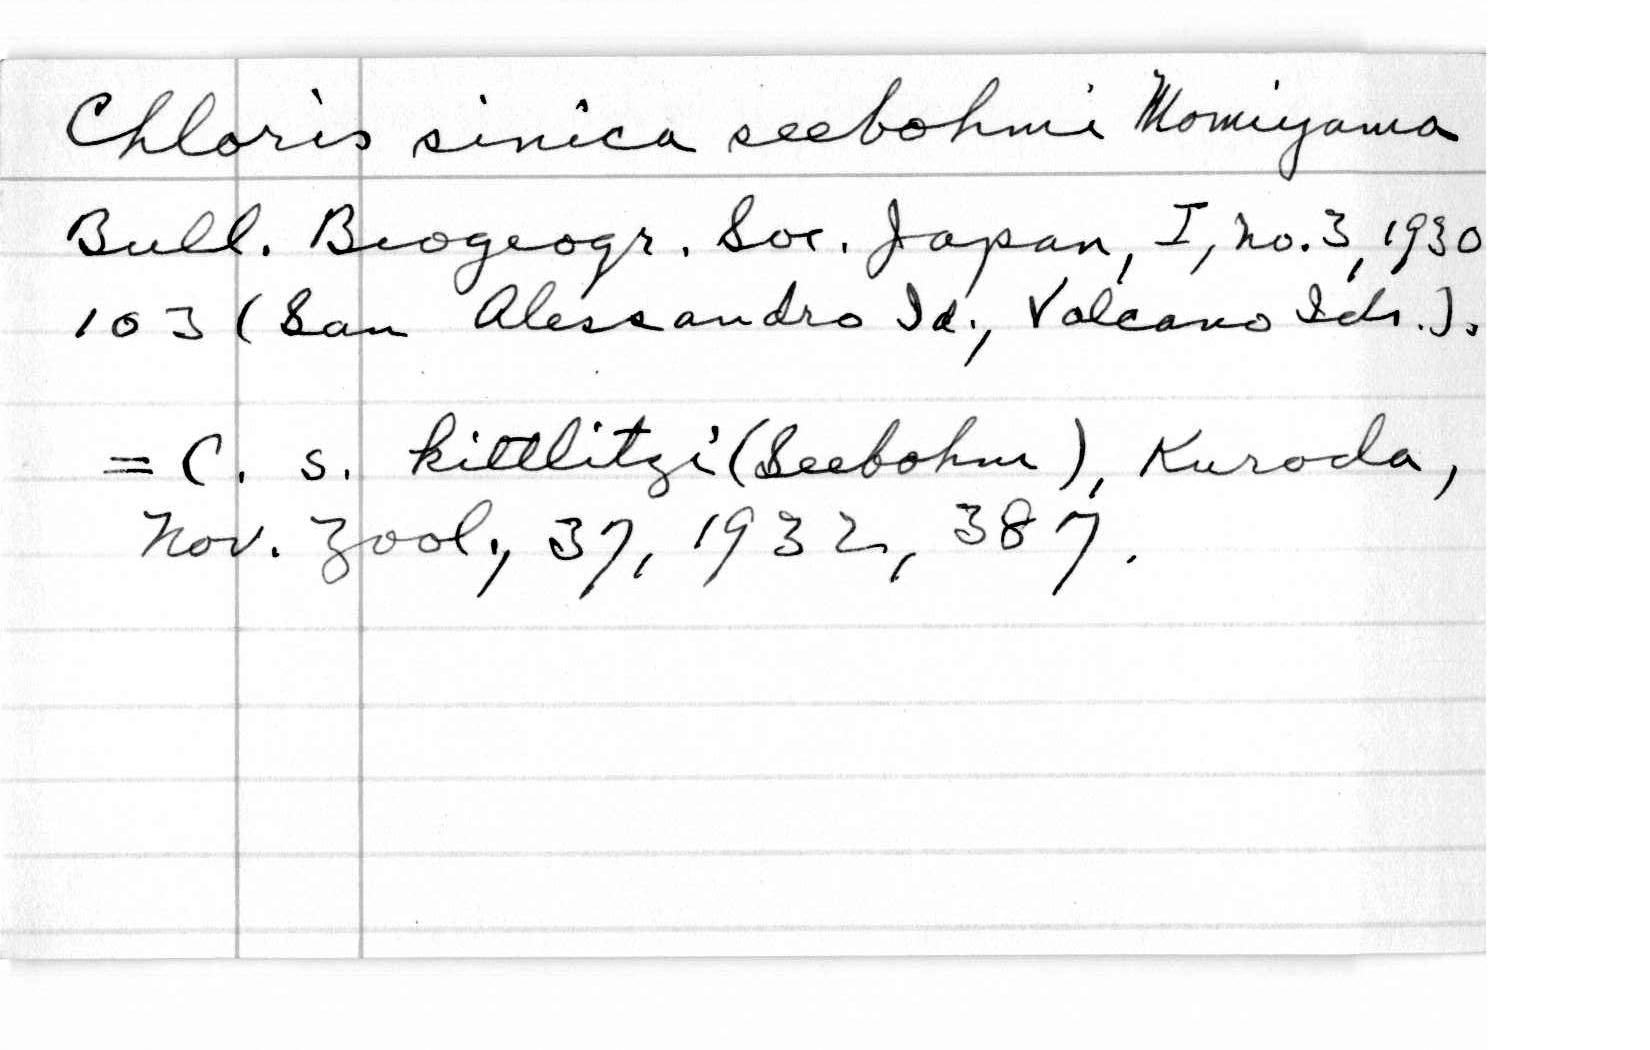 Chloris sinica seebohmi Momiyama
Bull. Biogeogr. Soc. Japan, I, no. 3, 1930
103 (San Alessandro Id., Volcano Ids.).
= C. s. kittlitzi (Seebohm), Kuroda,
Nov. Zool., 37, 1932, 387.